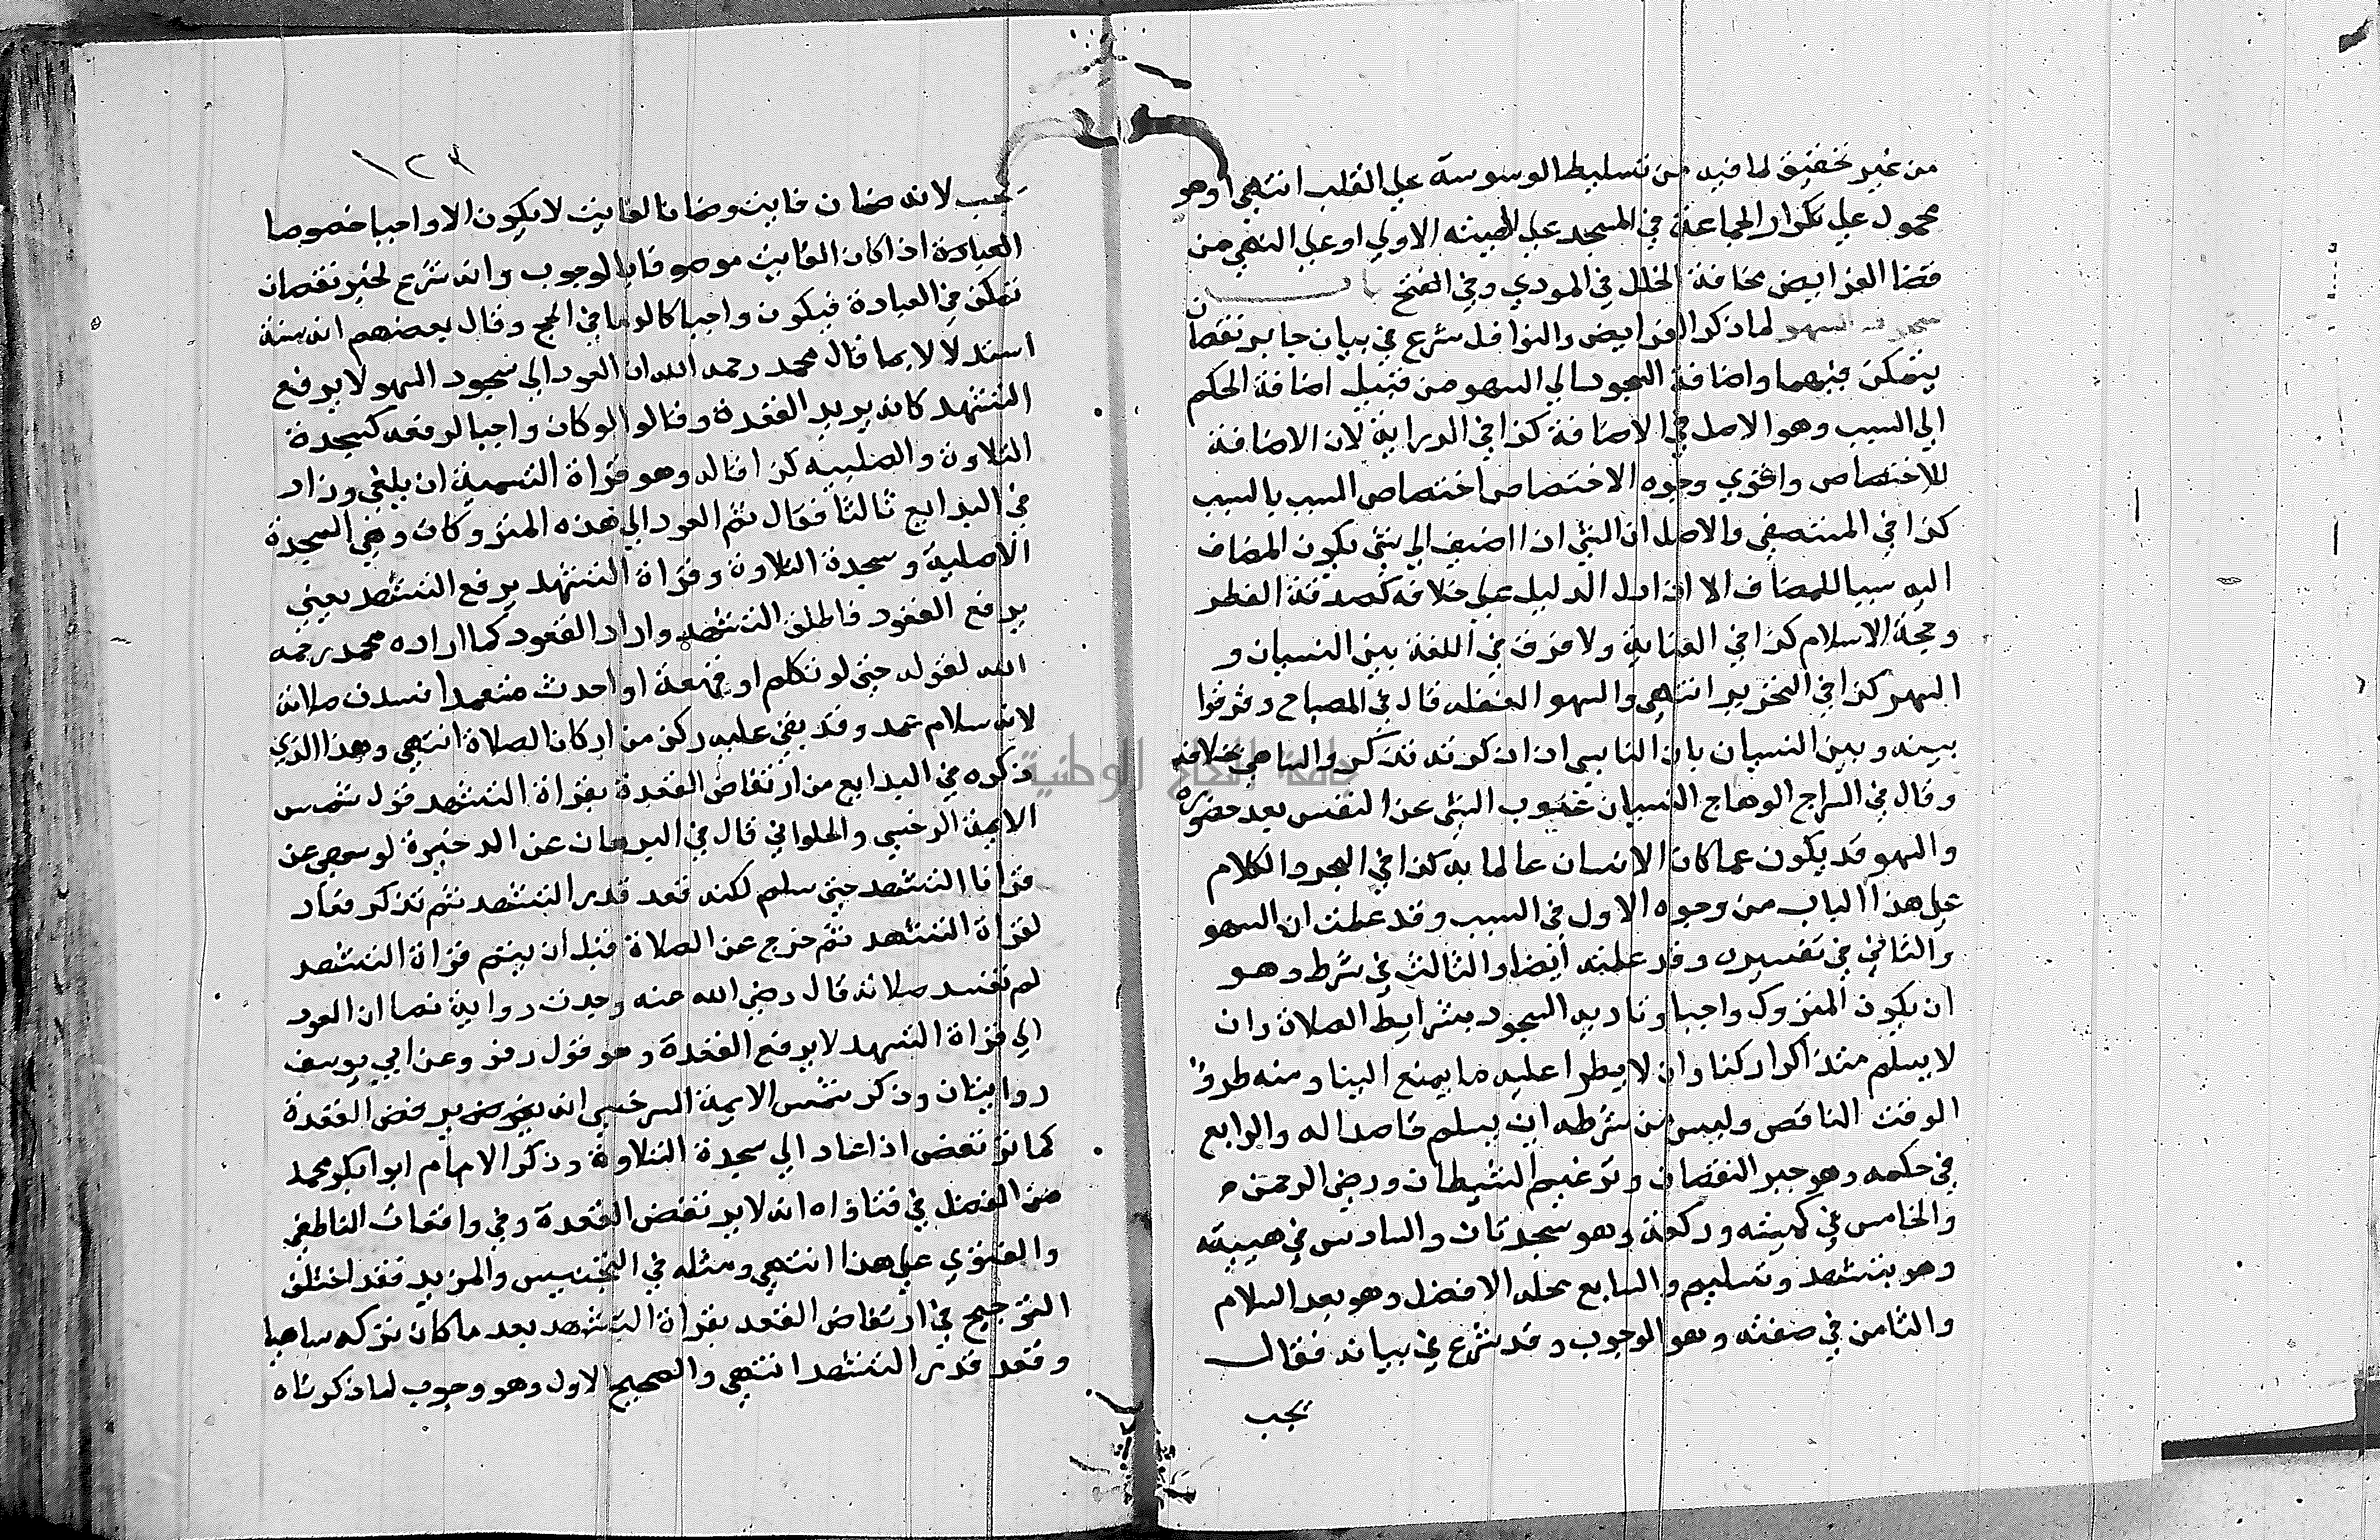 من غير تحقيق لما فيه من تسليط الوسوسة علي القلب انتهي او هو
محمول علي تكرار الجماعة في المسجد علي الهيئه الاولي او علي النهي من
قضا الفرايض مخافة الخلل في المودي وفي الفتح باب
سجود السهو لما ذكر الفرايض والنوافل شرع في بيان جابر نقصان
يتمكن فيهما واضافة السجود الي السهو من قبيل اضافة الحكم
الي السبب وهو الاصل في الاضافة كذا في الدراية لان الاضافة
للاختصاص واقوي وجوه الاختصاص اختصاص المسبب بالسبب
كذا في المستصفي والاصل ان الشي اذا اضيف الي شي يكون المضاف
اليه سببا للمضاف الا ان دل الدليل علي خلافه كصدقة الفطر
وحجة الاسلام كذا في العناية ولا فرق في اللغة بين النسيان و
السهو كذا في التحرير انتهي والسهو الغفله قال في المصباح وفرقوا
بينه وبين النسيان بان الناسي اذا ذكرته تذكر والساهي بخلافه
وقال في السراج الوهاج النسيان عزوب الشي عن النفس بعد حضوره
والسهو قد يكون عما كان الانسان عالما به كذا في البحر والكلام
علي هذا الباب من وجوه الاول في السبب وقد علمت ان السهو
والثاني في تفسيره وقد علمته أيضا والثالث في شرط وهو
ان يكون المتروك واجبا وتاديه السجود بشرايط الصلاة وان
لا يسلم متذاكرا ركنا وان لا يطرا عليه ما يمنع البنا ومنه طروّ
الوقت الناقص وليس من شرطه ان يسلم قاصدا له والرابع
في حكمه وهو جبر النقصان وترغيم الشيطان ورضي الرحمن
والخامس في كميته وركعة وهو سجدتان والسادس في هييته
وهو بتشهد وتسليم والسابع محله الافضل وهو بعد السلام
والثامن في صفته وهو الوجوب وقد شرع في بيانه فقال
يجب
١٢٣
يجب لانه ضمان فايت وضمان الفايت لا يكون الا واجبا خصوصا
العبادة اذا كان الفايت موصوفا بالوجوب وانه شرع لجبر نقصان
تمكن في العبادة فيكون واجبا كالدما في الحج وقال بعضهم انه سنة
استدلالا بما قال محمد رحمه الله ان العود الي سجود السهو لا يرفع
التشهد كانه يريد القعدة وقالوا لو كان واجبا لرفعه كسجدة
التلاوة والصلبيه كذا قاله وهو قراة التسمية ان يلغي وزاد
في البدايع ثالثا فقال ثم العود الي هذه المتروكات وهي السجدة
الاصلية وسجدة التلاوة وقراة التشهد يرفع التشهد يعني
يرفع القعود فاطلق التشهد واراد القعود كما اراده محمد رحمه
الله لقوله حتي لو تكلم او قهقه او احدث متعمدا فسدت صلاته
لانه سلام عمد وقد بقي عليه ركن من اركان الصلاة انتهي وهذا الذي
ذكره في البدايع من ارتفاض القعدة بقراة التشهد قول شمس
الايمة السرخسي والحلواني قال في البرهان عن الذخيرة لو سهي عن
قراة التشهد حتي سلم لكنه قعد قدر التشهد ثم تذكر فعاد
لقراة التشهد ثم خرج عن الصلاة قبل ان يتم قراة التشهد
لم تفسد صلاته قال رضي الله عنه وجدت رواية نصا ان العود
الي قراة التشهد لا يرفع القعدة وهو قول زفر وعن ابي يوسف
روايتان وذكر شمس الايمة السرخسي انه يرفض القعدة
كما ترتفض اذا عاد الي سجدة التلاوة وذكر الامام ابو بكر محمد
من الفضل في فتاواه انه لا يرتفض القعدة وفي واقعات الناطفي
والفتوي علي هذا انتهي ومثله في التجنيس والمزيد فقد اختلف
الترجيح في ارتفاض القعد بقراة التشهد بعد ما كان تركه ساهيا
وقعد قدر التشهد انتهي والصحيح الاول وهو وجوب لما ذكرناه
جامعة النجاح الوطنية